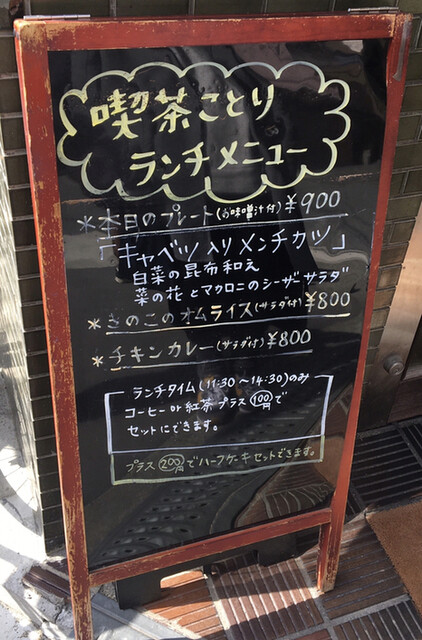 喫茶ことり
ランチメニュー
*本日のプレート(お味噌汁付)¥900
「キャベツ入りメンチカツ」
白菜の昆布和え
菜の花とマカロニのシーザーサラダ
*きのこのオムライス(サラダ付)¥800
*チキンカレー(サラダ付)¥800
ランチタイム(11:30〜14:30)のみ
コーヒーor紅茶プラス100円で
セットにできます。
プラス200円でハーフケーキセットできます。